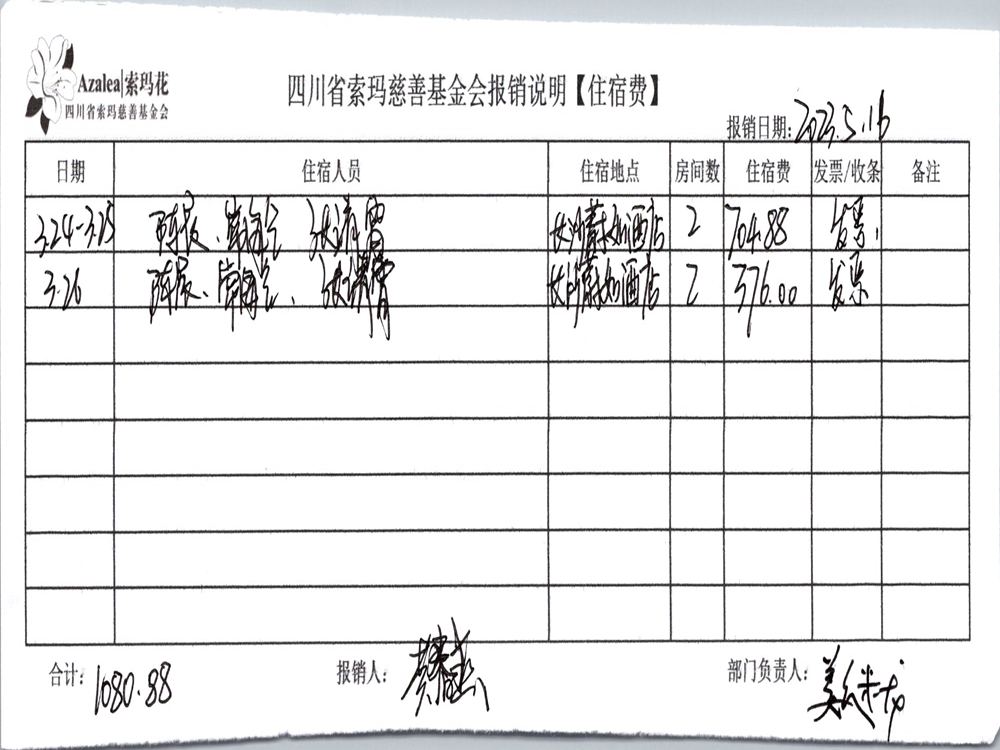 Azalea|索玛花
四川省索玛慈善基金会
四川省索玛慈善基金会报销说明【住宿费】
报销日期：2023.5.16
日期 住宿人员 住宿地点 房间数 住宿费 发票/收条 备注
3.24-3.25 陈辰、 2 704.88 发票.
3.26 陈辰、 2 376.00 发票
合计：1080.88 报销人： 部门负责人：